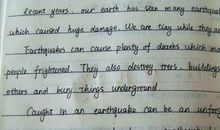 Recent years, our earth has seen many earthqua
which caused huge damage. We are tiny while they ar
Earthquakes can cause plenty of deaths which ma
people frightened. They also destroy trees, building
others and bury things underground.
Caught in an earthquake can be an unforg